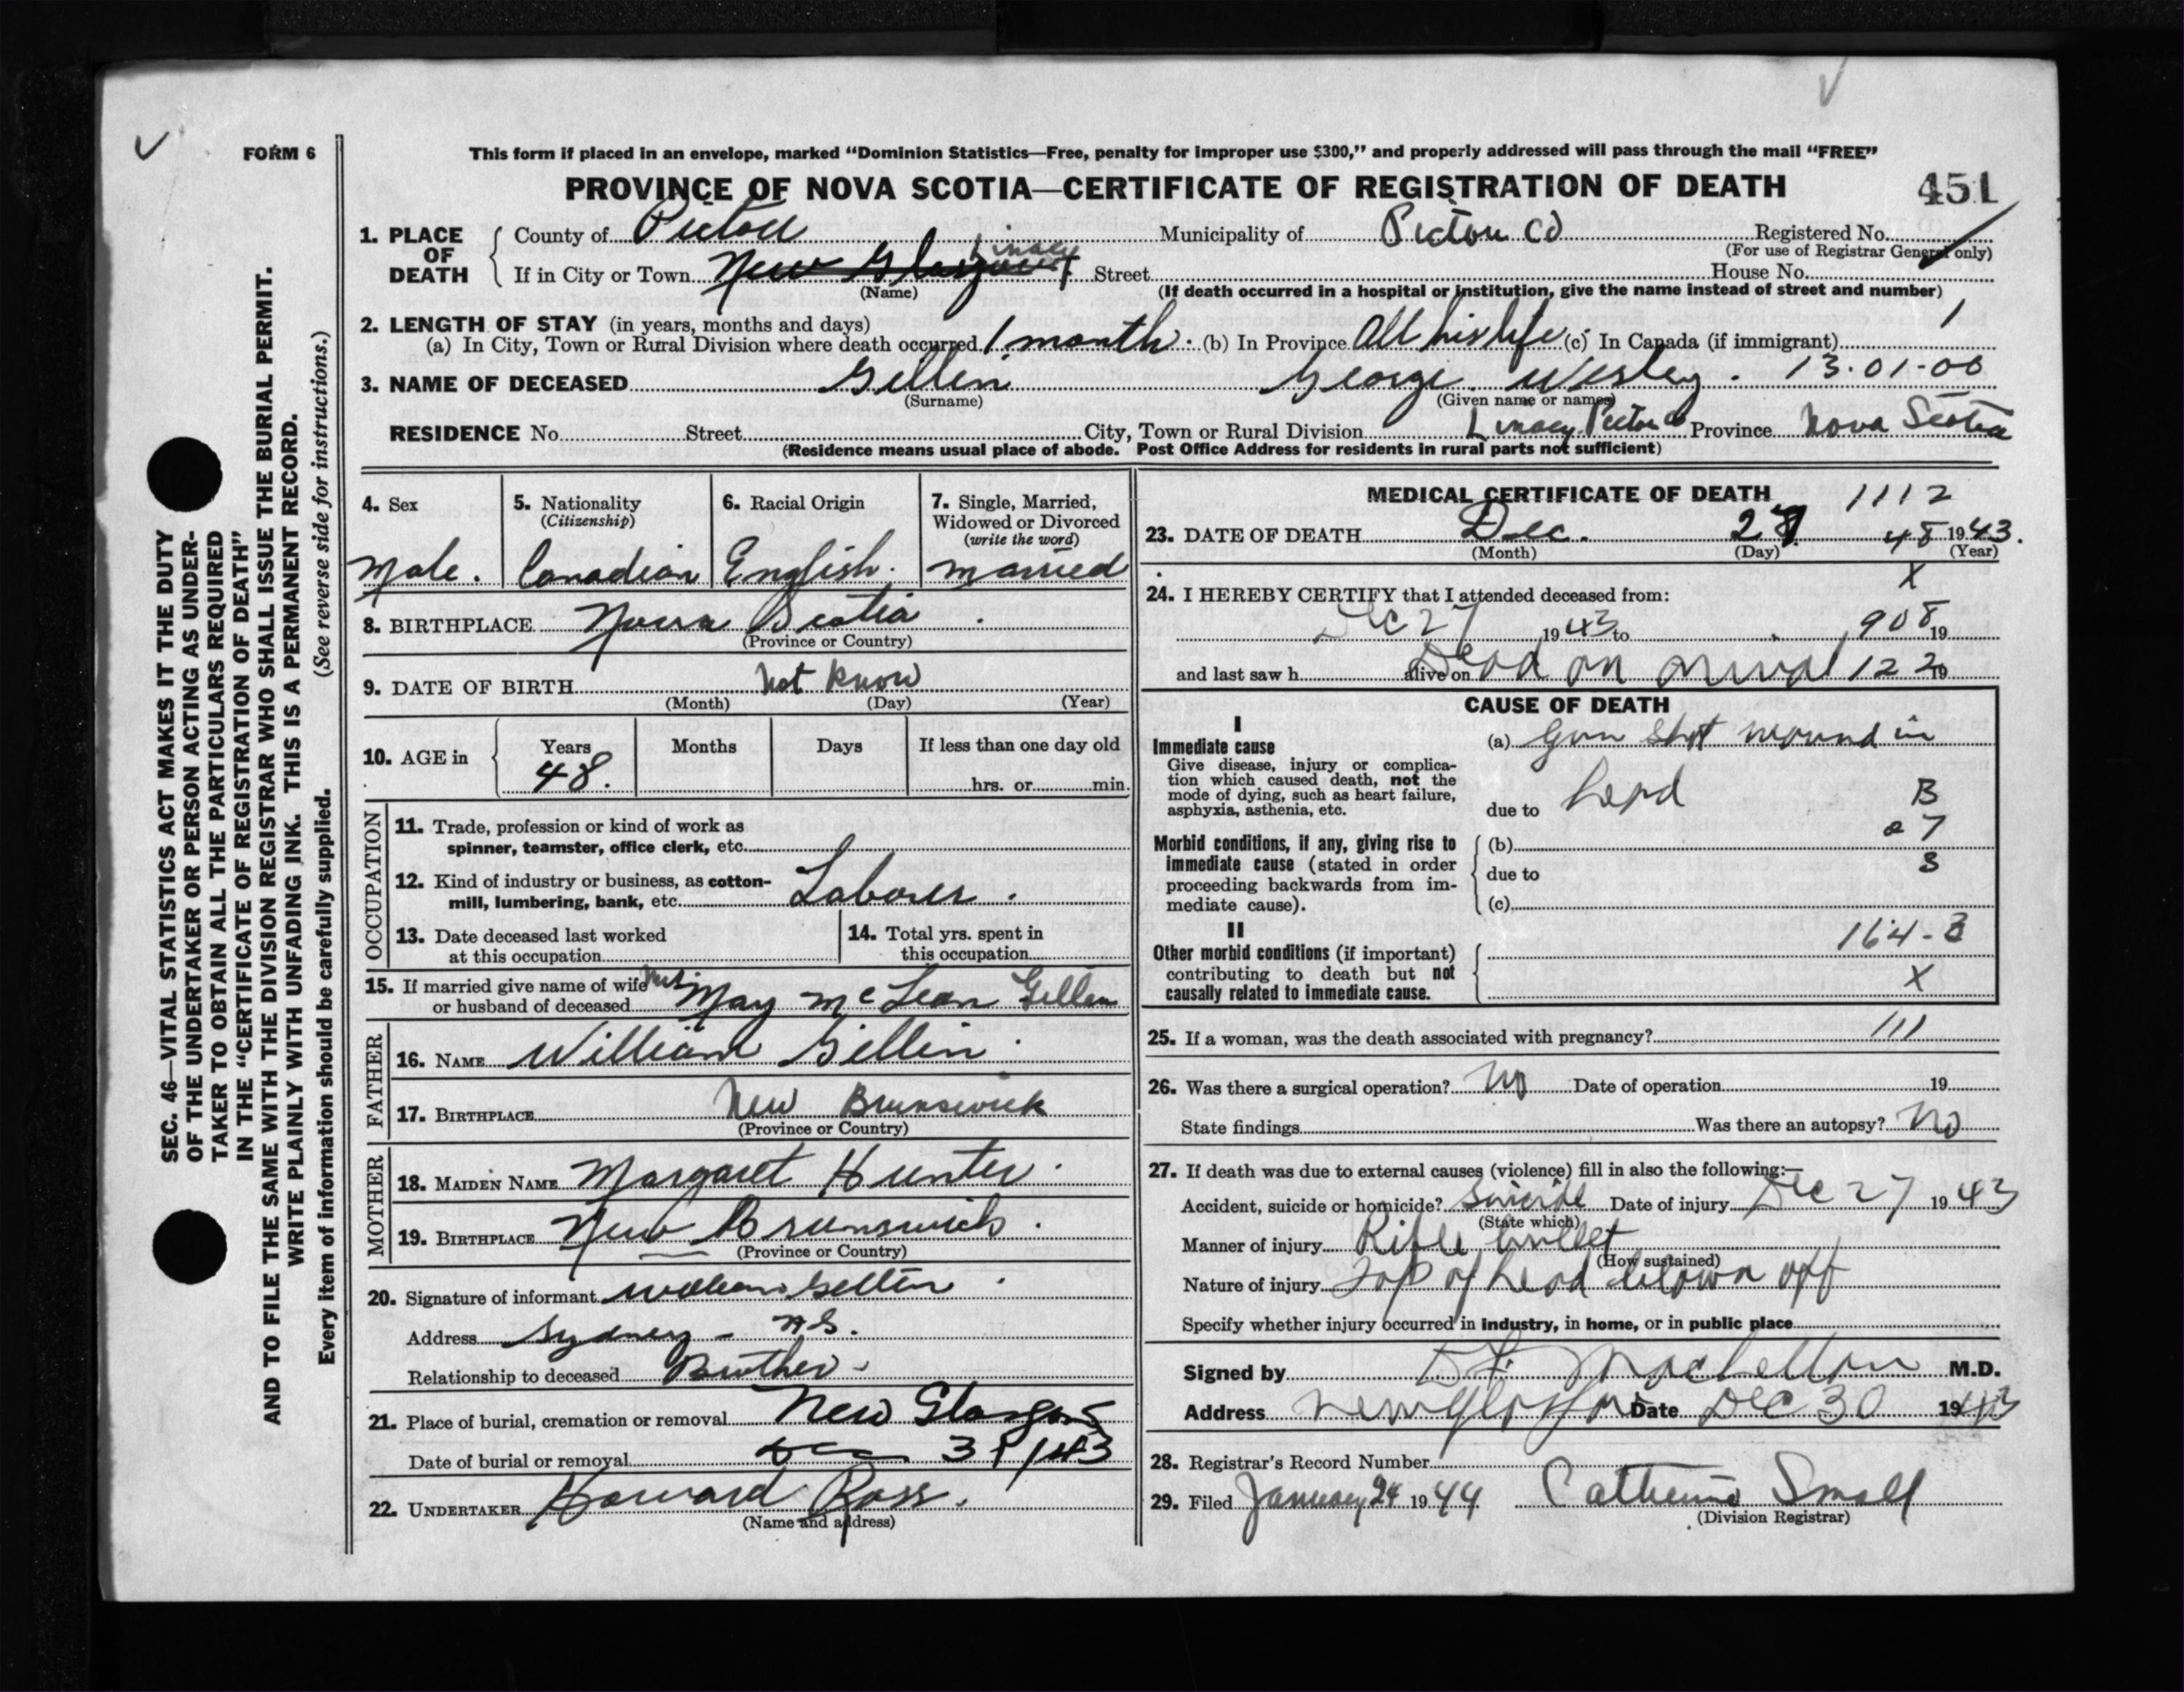 FORM 6
This form if placed in an envelope, marked “Dominion Statistics—Free, penalty for improper use $300,” and properly addressed will pass through the mail “FREE”
PROVINCE OF NOVA SCOTIA—CERTIFICATE OF REGISTRATION OF DEATH 451
1. PLACE OF DEATH
County of Pictou Municipality of Pictou Co Registered No.
(For use of Registrar General only)
If in City or Town New Glasgow Linacy Street House No.
(Name) (If death occurred in a hospital or institution, give the name instead of street and number)
2. LENGTH OF STAY (in years, months and days) 1
(a) In City, Town or Rural Division where death occurred 1 month. (b) In Province All his life (c) In Canada (if immigrant)
3. NAME OF DECEASED Gillen George Wesley. 13.01-00
(Surname) (Given name or names)
RESIDENCE No. Street City, Town or Rural Division Linacy Pictou Co Province Nova Scotia
(Residence means usual place of abode. Post Office Address for residents in rural parts not sufficient)
4. Sex 5. Nationality (Citizenship) 6. Racial Origin 7. Single, Married, Widowed or Divorced (write the word)
Male. Canadian English. Married
8. BIRTHPLACE Nova Scotia.
(Province or Country)
9. DATE OF BIRTH Not Know
(Month) (Day) (Year)
10. AGE in Years Months Days If less than one day old
48. hrs. or min.
OCCUPATION
11. Trade, profession or kind of work as
spinner, teamster, office clerk, etc.
12. Kind of industry or business, as cotton-
mill, lumbering, bank, etc. Laborer.
13. Date deceased last worked
at this occupation
14. Total yrs. spent in
this occupation
15. If married give name of wife
or husband of deceased Mrs May McLean Gillen
FATHER
16. NAME William Gillen.
17. BIRTHPLACE New Brunswick
(Province or Country)
MOTHER
18. MAIDEN NAME Margaret Hunter.
19. BIRTHPLACE New Brunswick.
(Province or Country)
20. Signature of informant William Gillen.
Address Sydney - NS.
Relationship to deceased Brother
21. Place of burial, cremation or removal New Glasgow
Date of burial or removal Dec 31/43
22. UNDERTAKER Howard Ross.
(Name and address)
MEDICAL CERTIFICATE OF DEATH 1112
23. DATE OF DEATH Dec. 27 48 1943.
(Month) (Day) (Year)
X
24. I HEREBY CERTIFY that I attended deceased from:
Dec 27 1943 to 908 19
and last saw h alive on Dead on arrival 122 19
CAUSE OF DEATH
I
Immediate cause
Give disease, injury or complica-
tion which caused death, not the
mode of dying, such as heart failure,
asphyxia, asthenia, etc.
(a) Gun shot wound in
due to head B
Morbid conditions, if any, giving rise to
immediate cause (stated in order
proceeding backwards from im-
mediate cause).
(b) 7
due to 3
(c)
II
Other morbid conditions (if important)
contributing to death but not
causally related to immediate cause.
164-3
X
25. If a woman, was the death associated with pregnancy? 111
26. Was there a surgical operation? No Date of operation 19
State findings Was there an autopsy? No
27. If death was due to external causes (violence) fill in also the following:—
Accident, suicide or homicide? Suicide Date of injury Dec 27 1943
(State which)
Manner of injury Rifle bullet
(How sustained)
Nature of injury Top of head blown off
Specify whether injury occurred in industry, in home, or in public place
Signed by M.D.
Address New Glasgow Date Dec 30 1943
28. Registrar's Record Number
29. Filed January 24 1944 Catherine Small
(Division Registrar)
SEC. 46—VITAL STATISTICS ACT MAKES IT THE DUTY
OF THE UNDERTAKER OR PERSON ACTING AS UNDER-
TAKER TO OBTAIN ALL THE PARTICULARS REQUIRED
IN THE “CERTIFICATE OF REGISTRATION OF DEATH”
AND TO FILE THE SAME WITH THE DIVISION REGISTRAR WHO SHALL ISSUE THE BURIAL PERMIT.
WRITE PLAINLY WITH UNFADING INK. THIS IS A PERMANENT RECORD.
Every item of information should be carefully supplied. (See reverse side for instructions.)